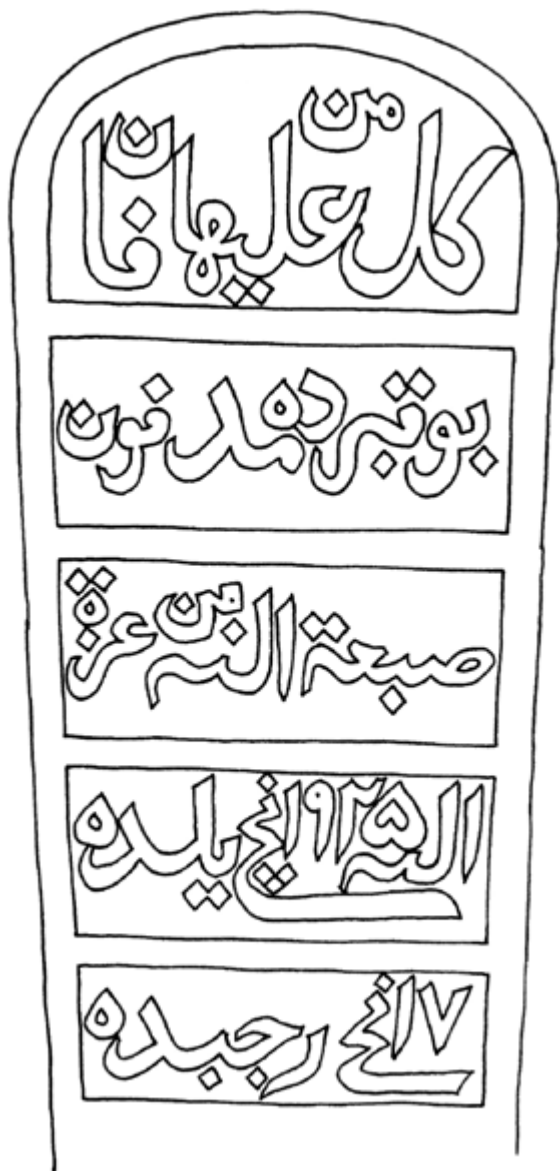 كل من عليها فان
بو قبرده مدفون
صبعة النه من عزة
النه ١٩٢٥ نجي يلده
١٧ نجي رجبده